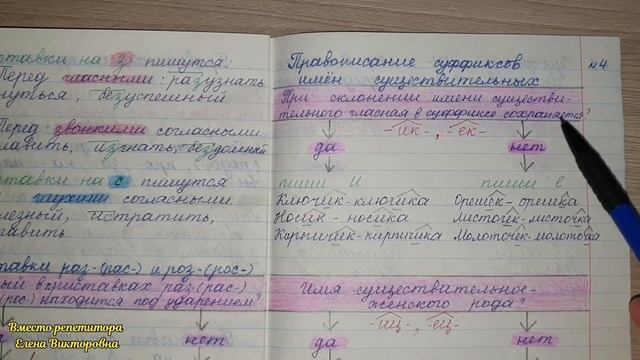 ставки на з пишутся:
Перед гласными: разузнать
нуться, безуспешный
Перед звонкими согласными
изгнать, бездомный
ставки на с пишутся
глухими согласными.
истратить,
ставки раз-(рас-) и роз-(рос-)
в приставках раз-(рас-)
(рос) находится под ударением?
нет
Правописание суффиксов
имён существительных
При склонении имени существи-
тельного гласная в суффиксе сохраняется?
-ик-, -ек-
да нет
пиши И пиши Е
Ключик - ключика Орешек - орешка
Носик - носика Листочек - листочка
Кирпичик - кирпичика Молоточек - молоточка
Имя существительное -
женского рода?
-иц-, -ец-
да нет
№4
Вместо репетитора
Елена Викторовна